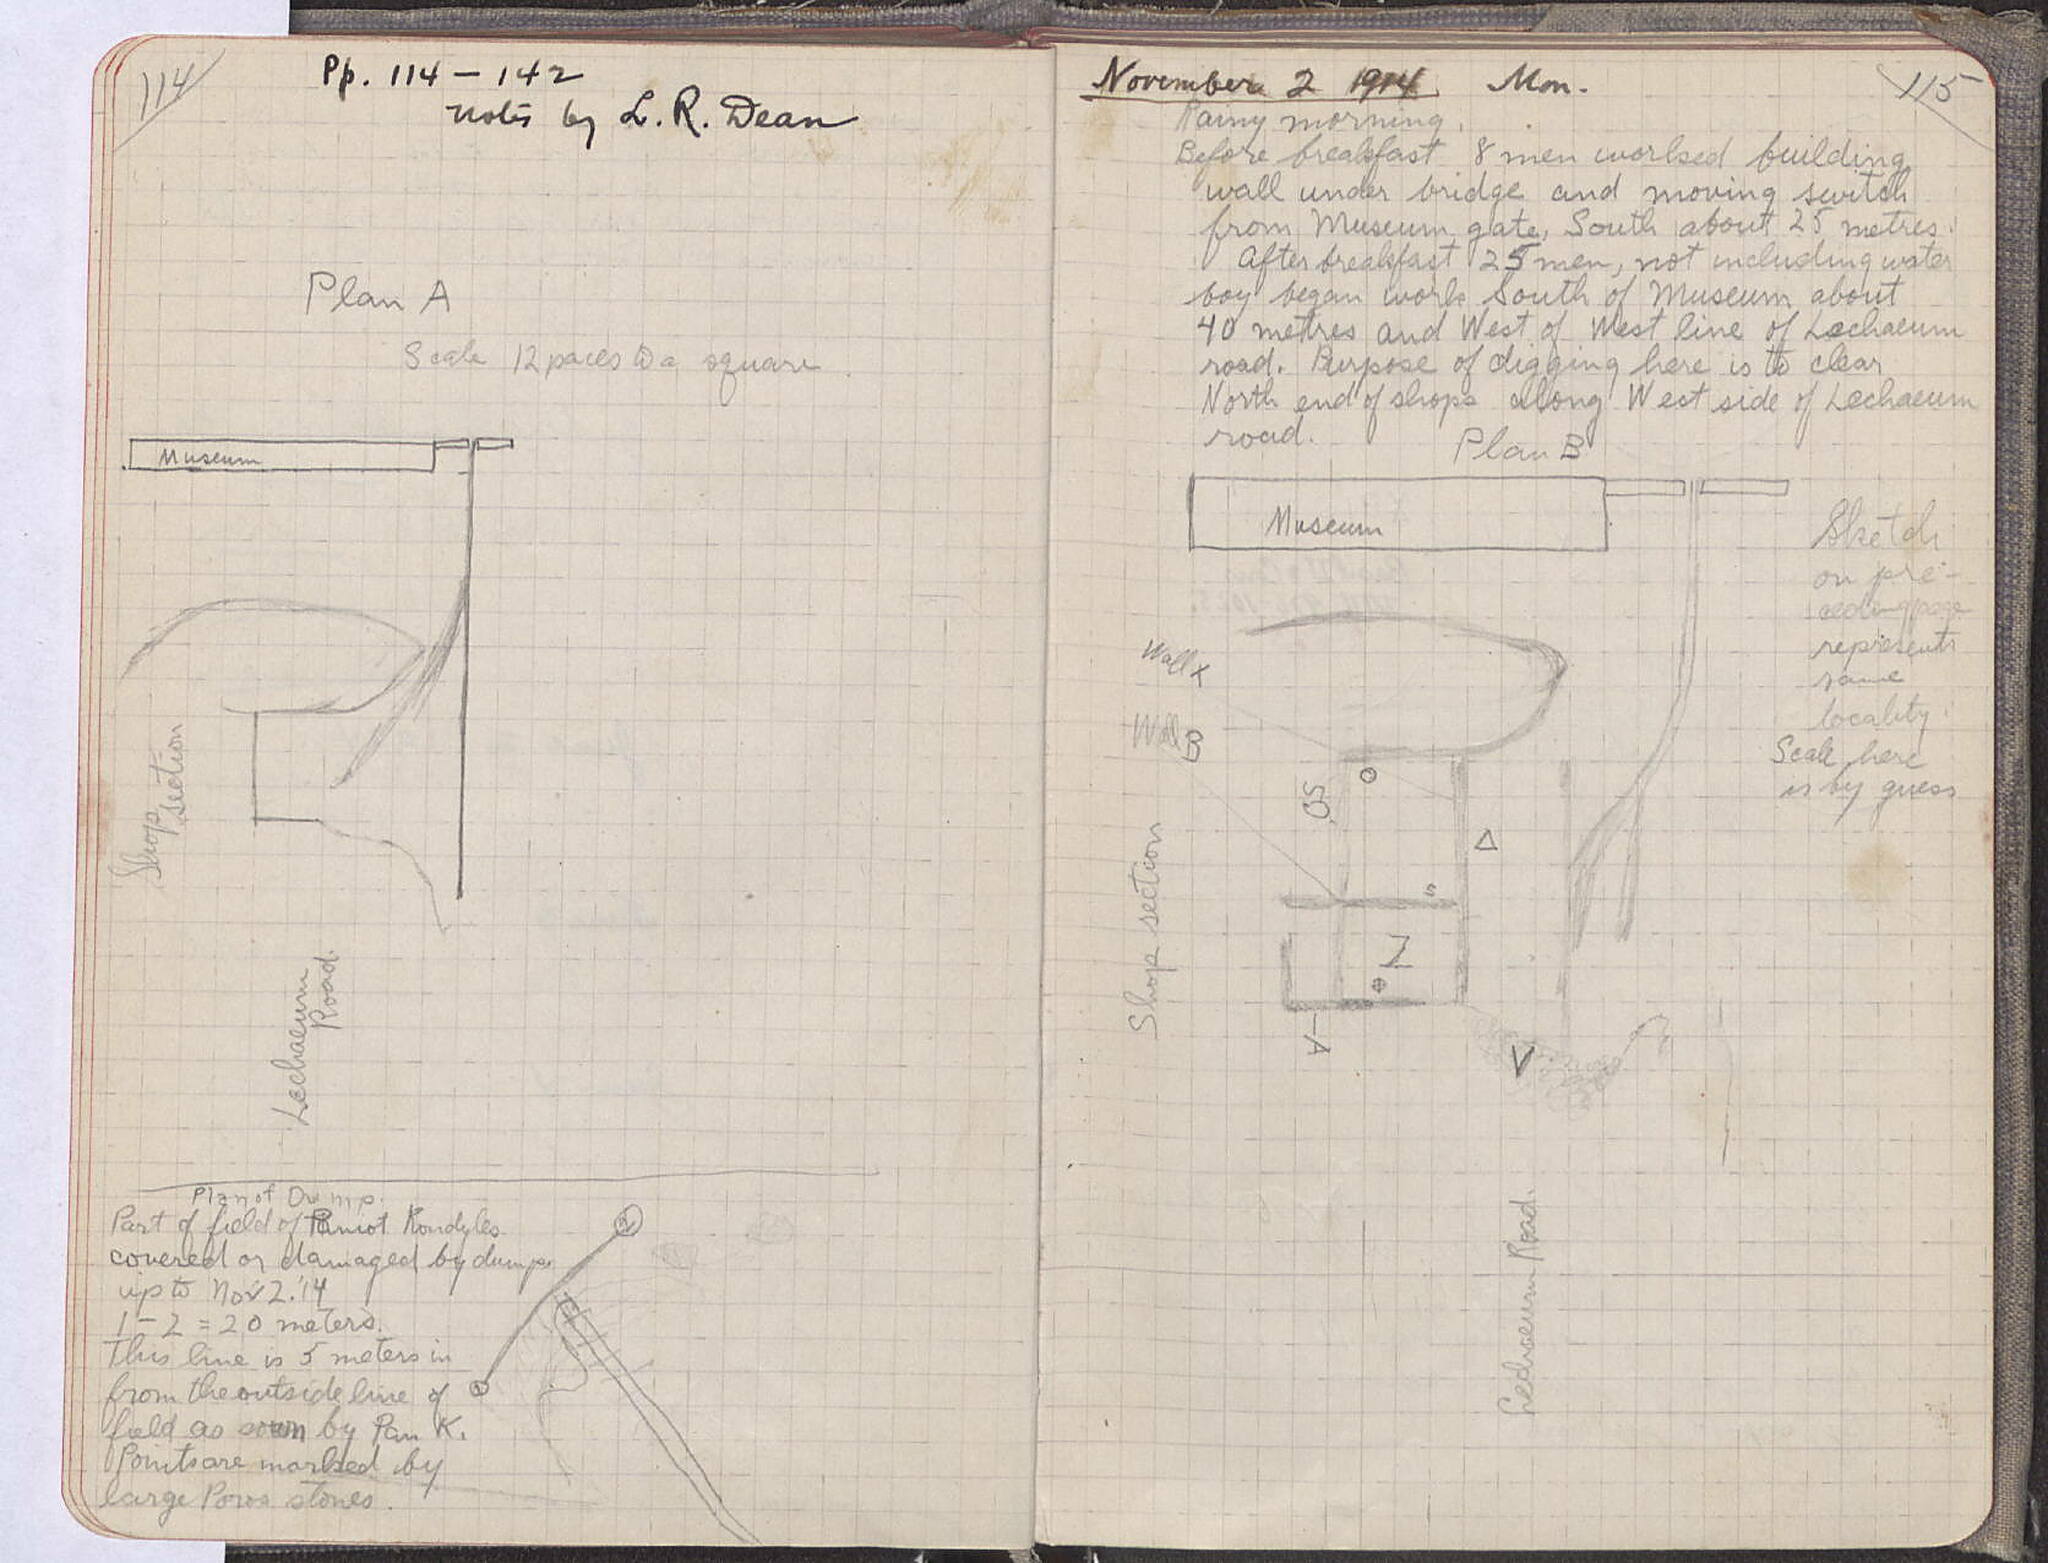 114
Pp. 114 – 142
notes by L. R. Dean
Plan A
Scale 12 paces to a square.
Museum
Shop section
Lechaeum Road.
Plan of Dump.
Part of field of Paniot Kondyles
covered or damaged by dumps
up to Nov 2. '14
1 – 2 = 20 meters.
This line is 5 meters in
from the outside line of
field as sown by Pan K.
Points are marked by
large Poros stones.
2
1
115
November 2 1914. Mon.
Rainy morning.
Before breakfast 8 men worked building
wall under bridge and moving switch
from Museum gate, South about 25 metres.
After breakfast 25 men, not including water
boy began work South of Museum about
40 metres and West of West line of Lechaeum
road. Purpose of digging here is to clear
North end of shops along West side of Lechaeum
road.
Plan B
Museum
Sketch
on pre-
ceding page
represents
same
locality.
Scale here
is by guess
Wall X
Wall B
Shop section
Δ
S
Z
A
V
Lechaeum Road.